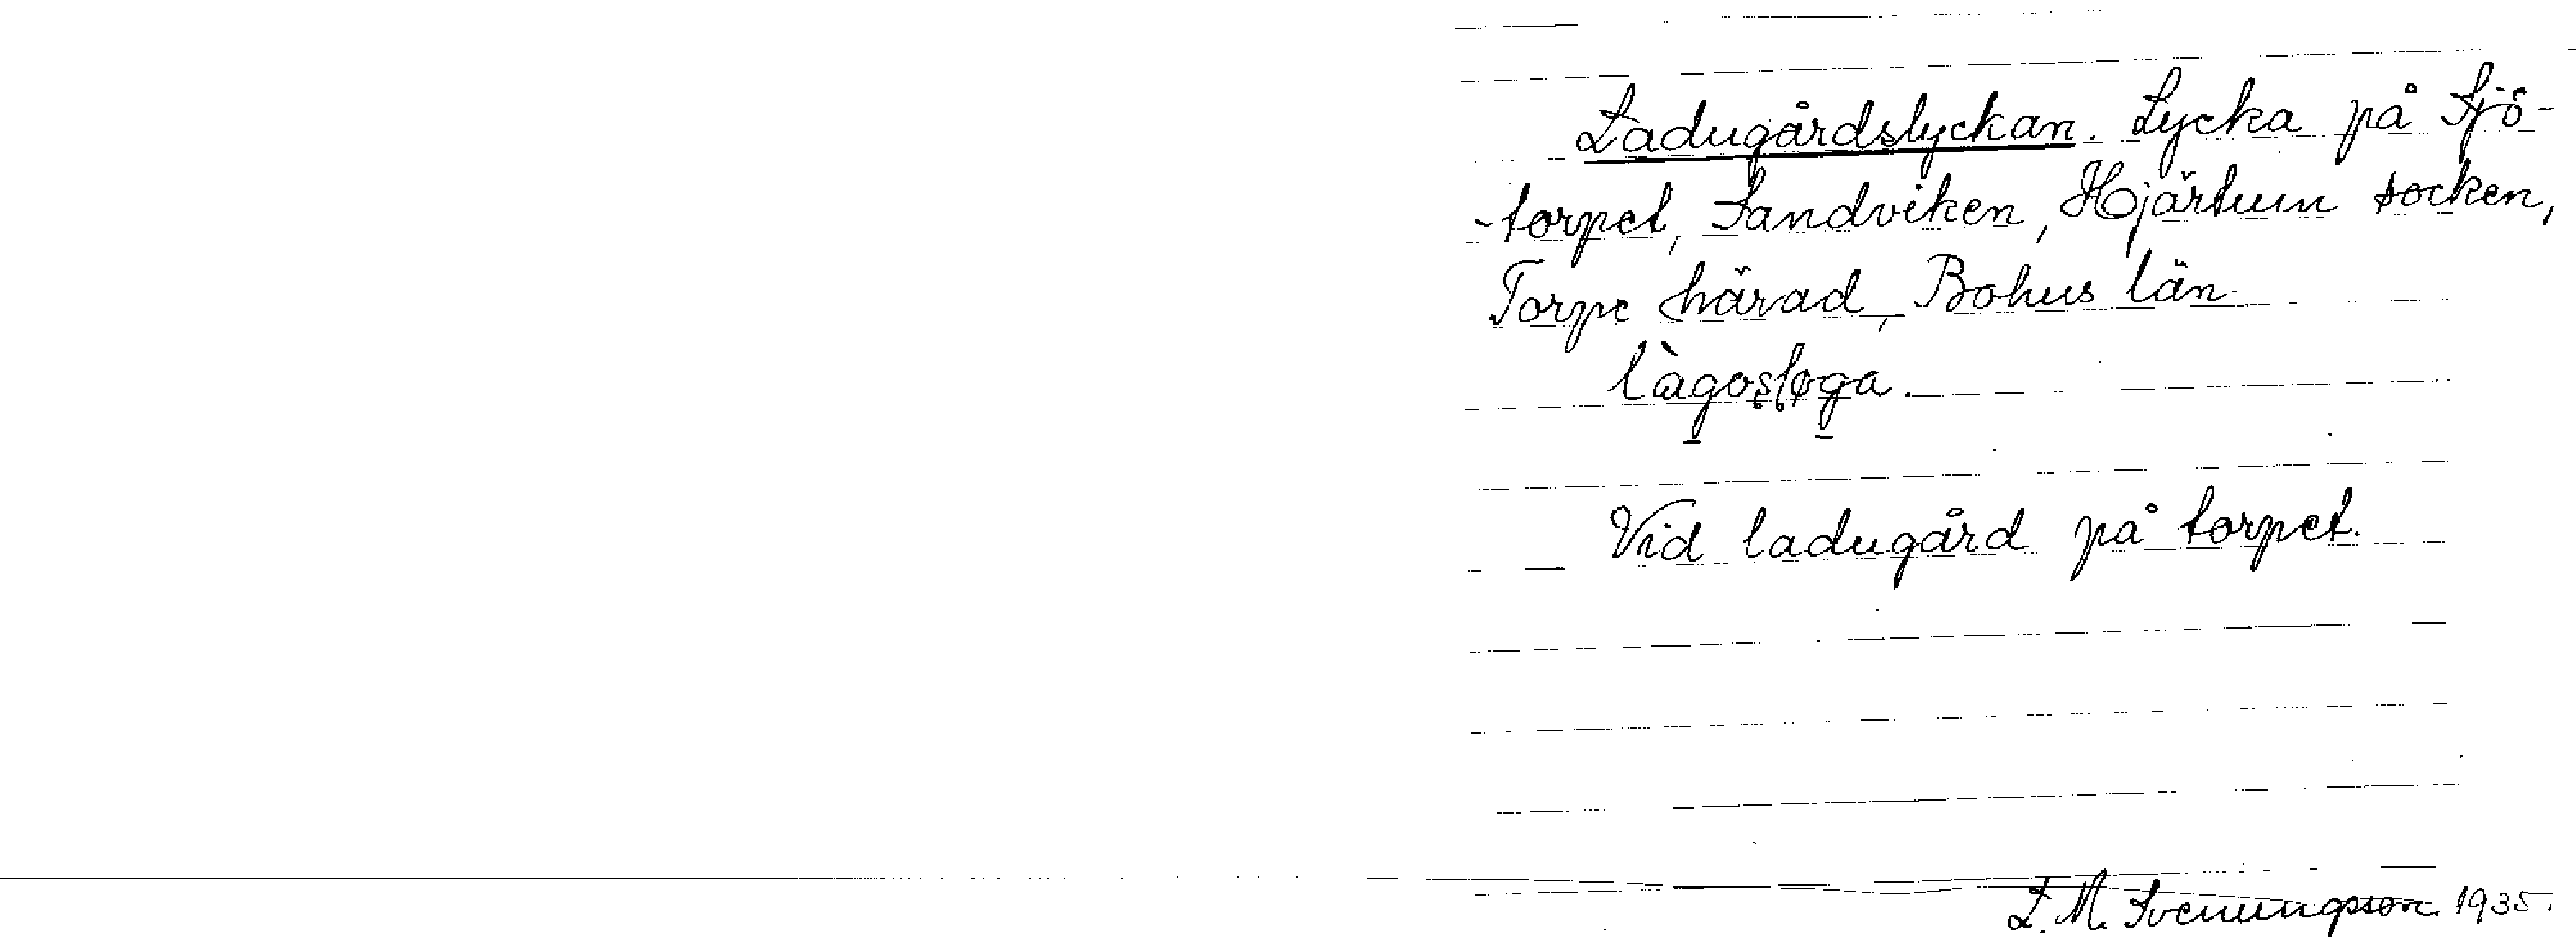 Ladugårdslyckan. Lycka på Sjö-
-torpet, Sandviken, Hjärtum socken,
Torpe härad, Bohus län
làgosløga.
Vid ladugård på torpet.
L. M. Svenungsson 1935.